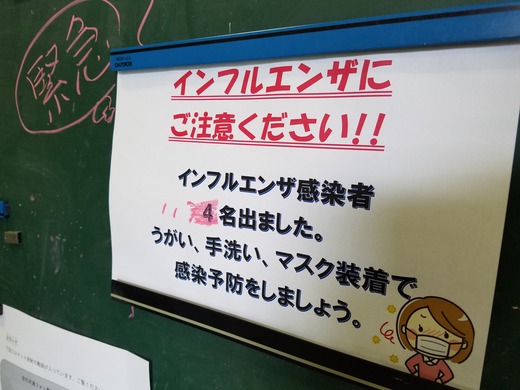 緊急
インフルエンザに
ご注意ください!!
インフルエンザ感染者
4名出ました。
うがい、手洗い、マスク装着で
感染予防をしましょう。